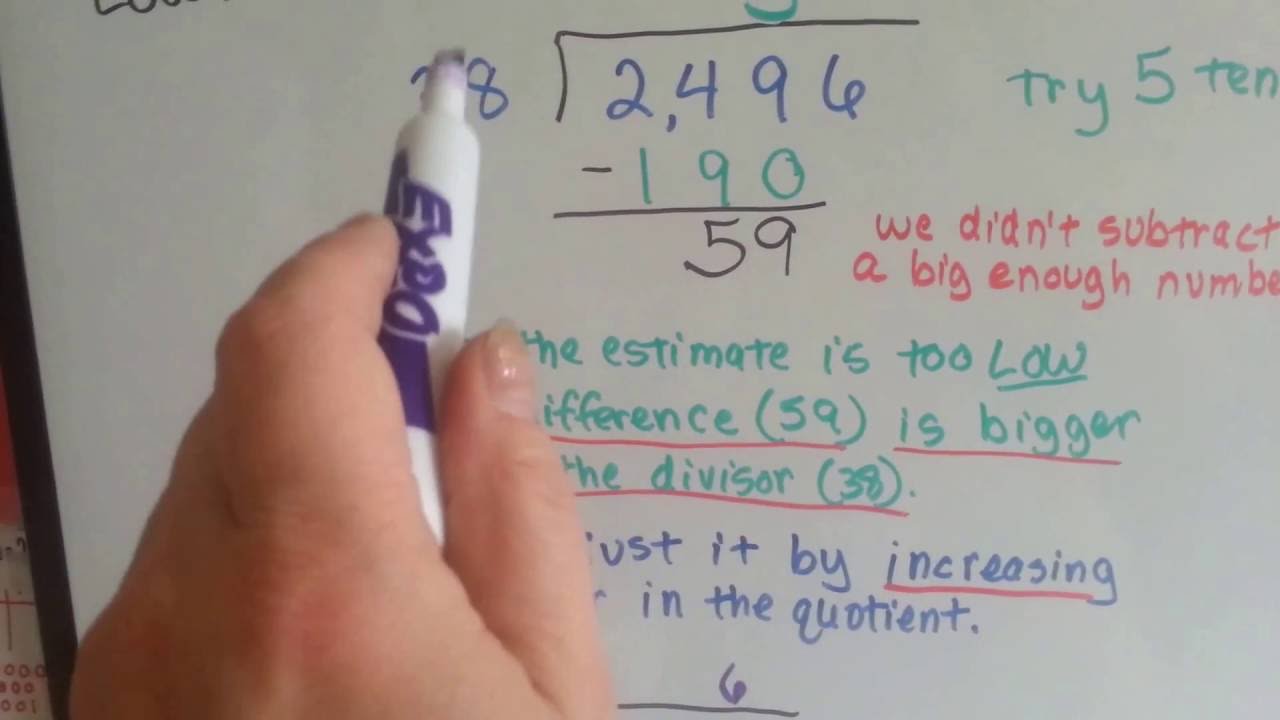 5
38 2,496 try 5 ten
-190
59
we didn't subtract
a big enough numbe
EXPO
the estimate is too LOW
ifference (59) is bigger
the divisor (38).
just it by increasing
r in the quotient.
6